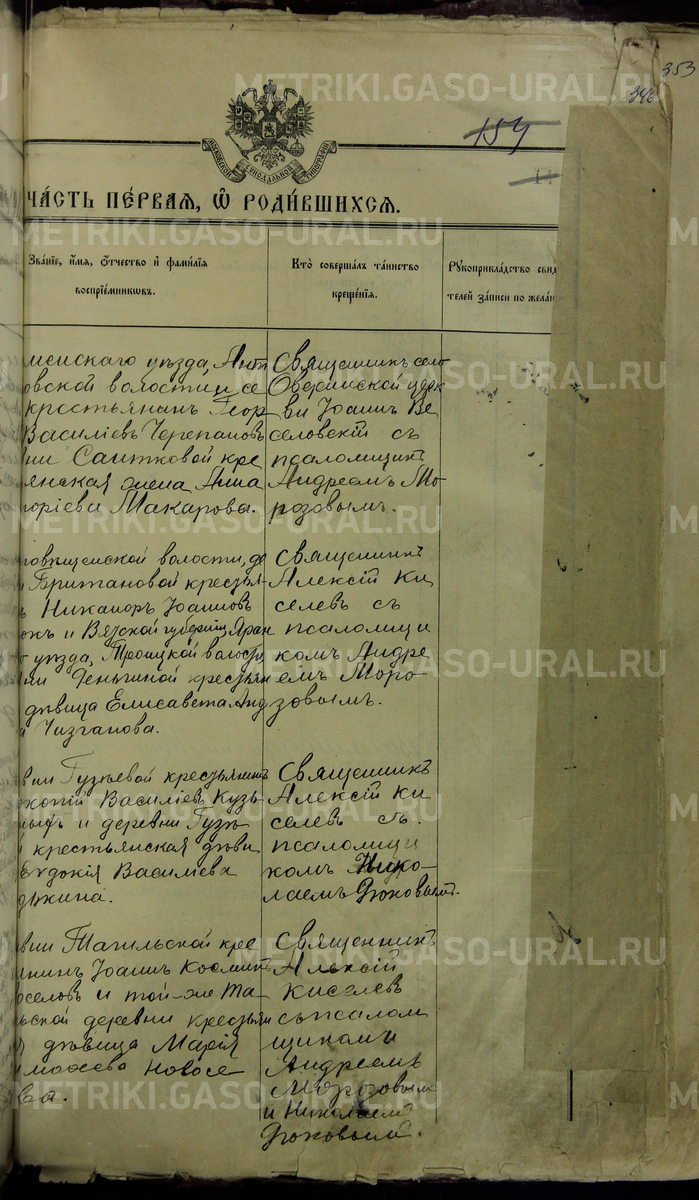 353
346
154
МОСКОВСКОЙ СѴНОДАЛЬНОЙ ТИПОГРАФІИ
ЧА́СТЬ ПЕ́РВАѦ, Ѽ РОДИ́ВШИХСѦ.
Зва́нїе, и́мѧ, ѻ́тчество и҆ фамѝлїѧ
воспрїе́мникѡвъ.
Кто̀ соверша́лъ та́инство
креще́нїѧ.
Рꙋкоприкла́дство свид
телей за́писи по жела́н
менскаго уѣзда, Анти
овской волостии се
крестьянинъ Геор
Василіевъ Черепановъ
ни Саитковой кре
янская жена Анна
горіева Макарова.
Священникъ село
Оверинской церк
ви Іоаннъ Ве
селовскій съ
псаломщик
Андреемъ Мо
розовымъ.
говѣщенской волости, де
и Британовой крестья
ъ Никаноръ Іоанновъ
окъ и Вятской губерніи, Яран
о уѣзда, Троицкой волости
ни Ченьгиной крестьян
дѣвица Елисавета Анд
а Чизганова.
Священникъ
Алексій Ки
селевъ съ
псаломщи
комъ Андре
емъ Моро
зовымъ.
вни Гузѣевой крестьянинъ
окопій Василіевъ Кузь
ныхъ и деревни Гузѣ
й крестьянская дѣви
Евдокія Василіева
дькина.
Священникъ
Алексій Ки
селевъ съ
псаломщи
комъ Нико-
лаемъ Дюковымъ.
вни Тагильской кре
нинъ Іоаннъ Космин
оселовъ и той-же Та-
ьской деревни крестьян
я дѣвица Марія
имоѳеева Новосе
ва.
Священникъ
Алексій
Киселевъ
съ псалом
щиками
Андреемъ
Морозовымъ
и Николаемъ
Дюковымъ.
METRIKI.GASO-URAL.RU